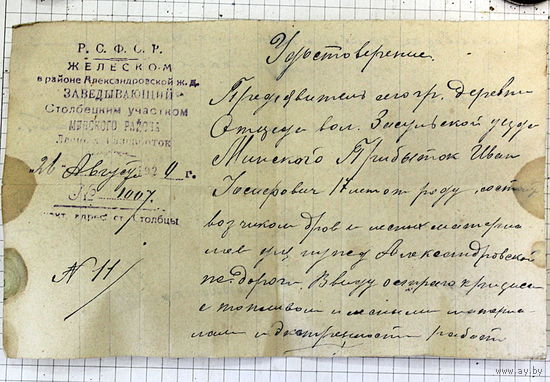 Р. С. Ф. С. Р.
ЖЕЛЕСКОМ
в районе Александровской ж. д.
ЗАВЕДЫВАЮЩИЙ
Столбецким участком
МИНСКОГО РАЙОНА
Августа 192 г.
№ 1007.
адрес: ст. Столбцы
N 11
Удостоверение.
Предъявитель сего гр. деревни
вол. Засульской уезда
Минского Прибыток Иван
17 лет от роду, состоит
возчиком дров и лесных материа
лов для нужд Александровской
дороги. Ввиду острого кризиса
с топливом и лесными материа
лами и экстренности работ
www.ay.by